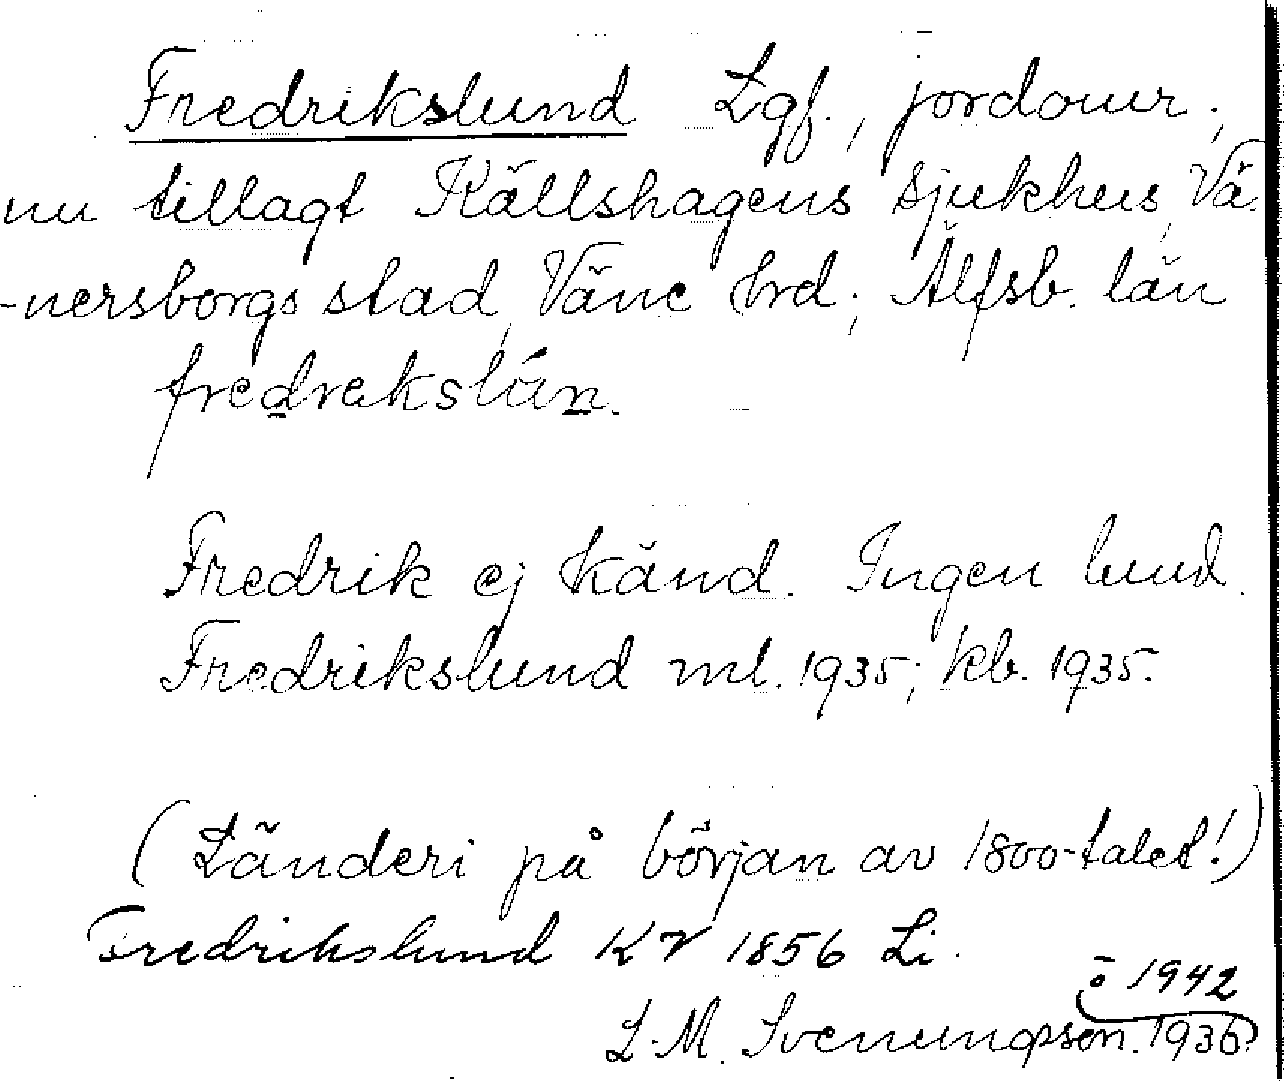 Fredrikslund Lgf., jordomr.,
nu tillagt Källshagens sjukhus, Vä-
-nersborgs stad, Väne hrd; Älfsb. län
fredrekslún.
Fredrik ej känd. Ingen lund.
Fredrikslund ml. 1935; kb. 1935.
(Länderi på början av 1800-talet!)
Fredrikslund KV 1856 Li.
ö 1942
L. M. Svenungsson. 1936